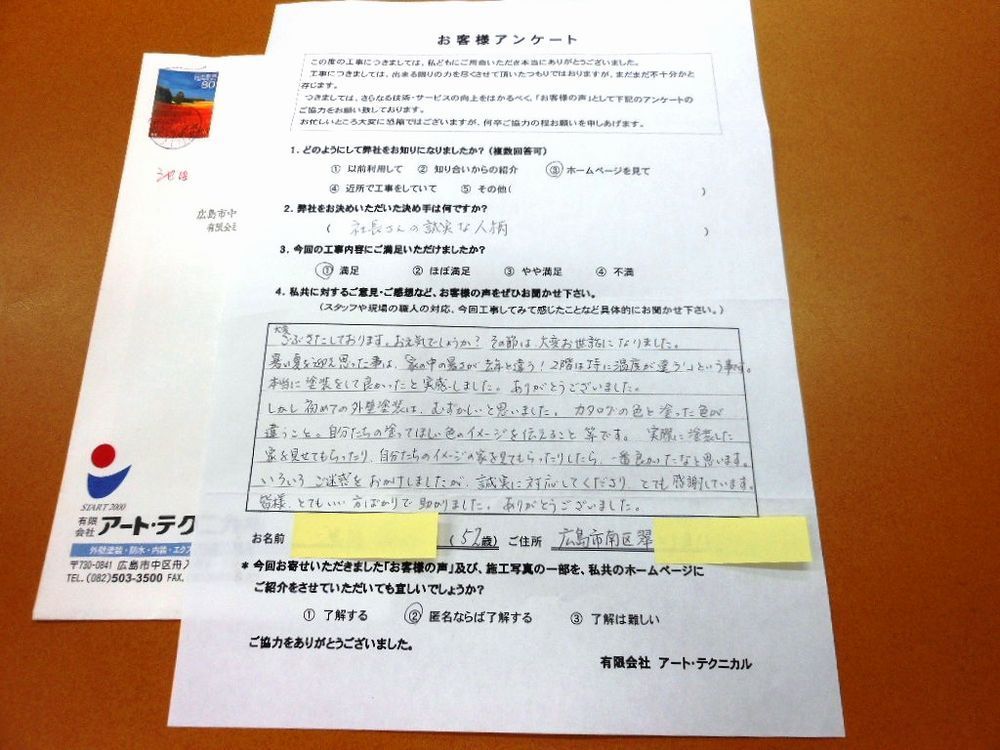 お客様アンケート
この度の工事につきましては、私どもにご用命いただき本当にありがとうございました。
工事につきましては、出来る限りの力を尽くさせて頂いたつもりではおりますが、まだまだ不十分かと
存じます。
つきましては、さらなる技術・サービスの向上をはかるべく、「お客様の声」として下記のアンケートの
ご協力をお願い致しております。
お忙しいところ大変に恐縮ではございますが、何卒ご協力の程お願いを申しあげます。
1. どのようにして弊社をお知りになりましたか？（複数回答可）
① 以前利用して ② 知り合いからの紹介 ③ ホームページを見て
④ 近所で工事をしていて ⑤ その他( )
2. 弊社をお決めいただいた決め手は何ですか？
( 社長さんの誠実な人柄 )
3. 今回の工事内容にご満足いただけましたか？
① 満足 ② ほぼ満足 ③ やや満足 ④ 不満
4. 私共に対するご意見・ご感想など、お客様の声をぜひお聞かせ下さい。
（スタッフや現場の職人の対応、今回工事してみて感じたことなど具体的にお聞かせ下さい。）
大変
ごぶさたしております。お元気でしょうか？ その節は、大変お世話になりました。
暑い夏を迎え思った事は、「家の中の暑さが去年と違う！2階は特に温度が違う！」という事です。
本当に塗装をして良かったと実感しました。ありがとうございました。
しかし初めての外壁塗装は、むずかしいと思いました。カタログの色と塗った色が
違うこと。自分たちの塗ってほしい色のイメージを伝えること 等です。 実際に塗装した
家を見せてもらったり、自分たちのイメージの家を見てもらったりしたら、一番良かったなと思います。
いろいろご迷惑をおかけしましたが、誠実に対応してくださり、とても感謝しています。
皆様、とてもいい方ばかりで助かりました。ありがとうございました。
お名前 (52歳) ご住所 広島市南区翠
* 今回お寄せいただきました「お客様の声」及び、施工写真の一部を、私共のホームページに
ご紹介をさせていただいても宜しいでしょうか？
① 了解する ② 匿名ならば了解する ③ 了解は難しい
ご協力をありがとうございました。
有限会社 アート・テクニカル
80
広島市中
有限会社
START 2000
有限
会社 アート・テクニ
外壁塗装・防水・内装・エクス
〒730-0841 広島市中区舟入
TEL.(082)503-3500 FAX.